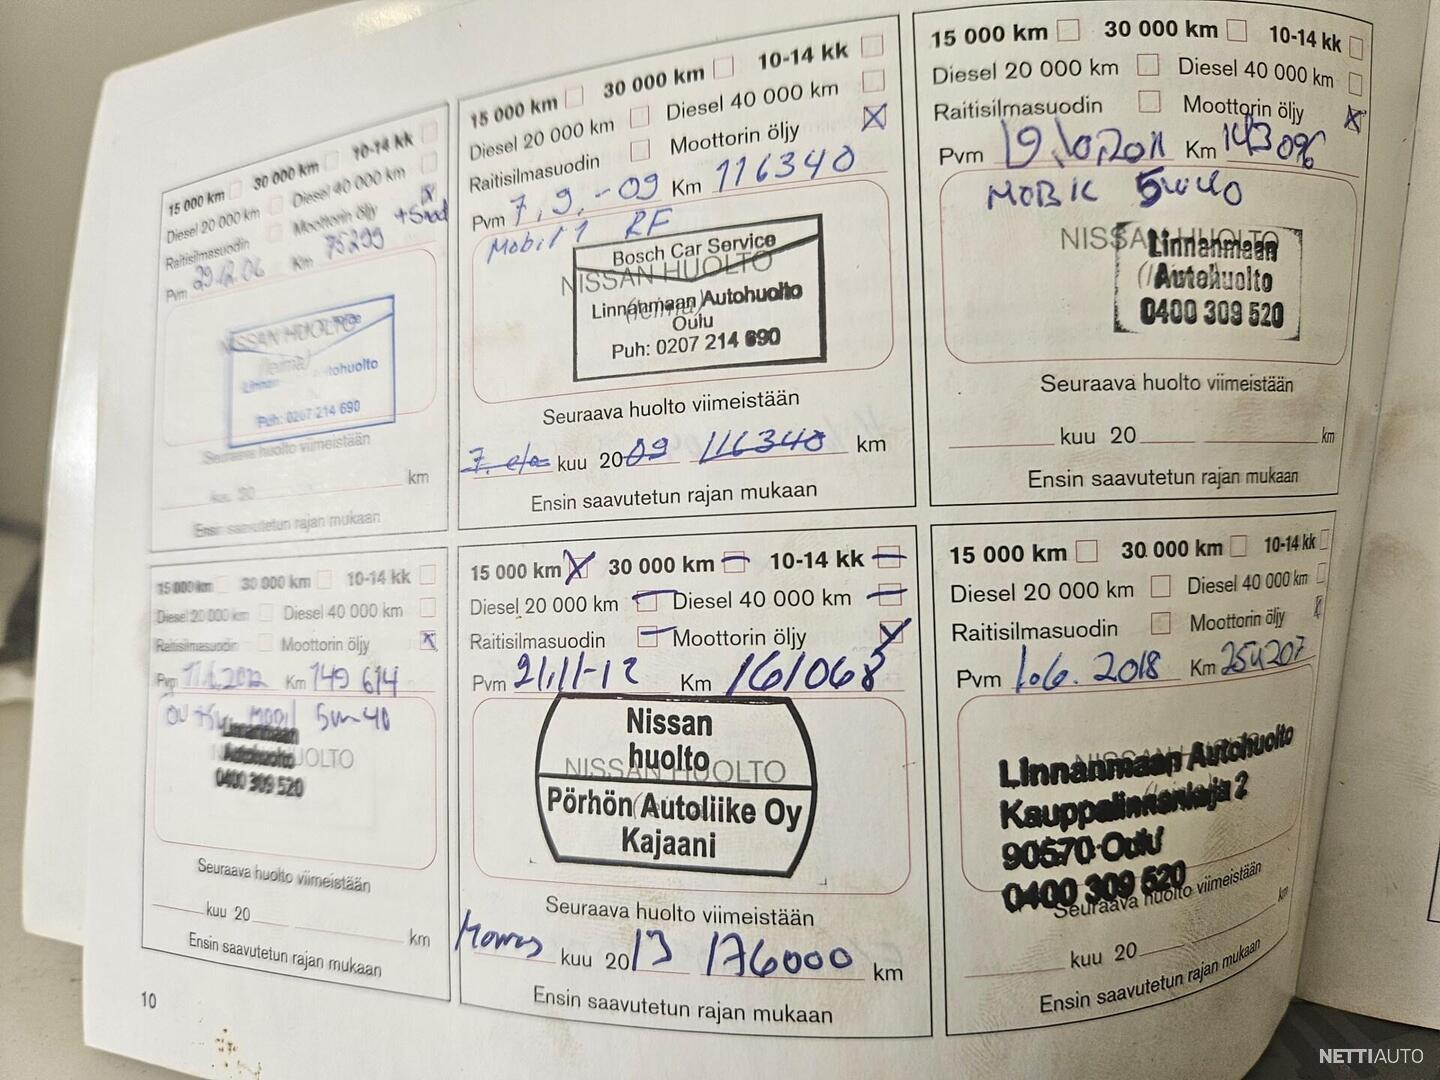 15 000 km 30 000 km 10-14 kk
Diesel 20 000 km Diesel 40 000 km
Raitisilmasuodin Moottorin öljy
Pvm 29.12.06 Km 75299
NISSAN HUOLTO
(leima)
Puh: 0207 214 690
Seuraava huolto viimeistään
kuu 20 km
Ensin saavutetun rajan mukaan
15 000 km 30 000 km 10-14 kk
Diesel 20 000 km Diesel 40 000 km
Raitisilmasuodin Moottorin öljy
Pvm 7.9.-09 Km 116340
Mobil 1 RF
Bosch Car Service
NISSAN HUOLTO
Linnanmaan Autohuolto
(leima)
Oulu
Puh: 0207 214 690
Seuraava huolto viimeistään
7. kuu 2009 116340 km
Ensin saavutetun rajan mukaan
15 000 km 30 000 km 10-14 kk
Diesel 20 000 km Diesel 40 000 km
Raitisilmasuodin Moottorin öljy
Pvm 19.10.2011 Km 143096
5w40
NISSAN HUOLTO
Linnanmaan
Autohuolto
0400 309 520
Seuraava huolto viimeistään
kuu 20 km
Ensin saavutetun rajan mukaan
15 000 km 30 000 km 10-14 kk
Diesel 20 000 km Diesel 40 000 km
Raitisilmasuodin Moottorin öljy
Pvm Km 149 614
5w-40
Linnanmaan
Autohuolto HUOLTO
0400 309 520
Seuraava huolto viimeistään
kuu 20 km
Ensin saavutetun rajan mukaan
15 000 km 30 000 km 10-14 kk
Diesel 20 000 km Diesel 40 000 km
Raitisilmasuodin Moottorin öljy
Pvm 21.11-12 Km 161068
Nissan
huolto
NISSAN HUOLTO
Pörhön Autoliike Oy
Kajaani
Seuraava huolto viimeistään
kuu 2013 176000 km
Ensin saavutetun rajan mukaan
15 000 km 30 000 km 10-14 kk
Diesel 20 000 km Diesel 40 000 km
Raitisilmasuodin Moottorin öljy
Pvm 1.6.2018 Km 254207
NISSAN HUOLTO
Linnanmaan Autohuolto
Kauppalinnankuja 2
90570 Oulu
0400 309 520
Seuraava huolto viimeistään
kuu 20 km
Ensin saavutetun rajan mukaan
10
NETTIAUTO